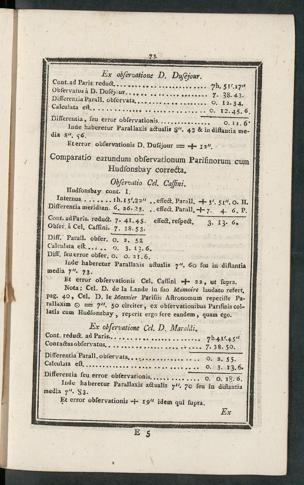 72
Ex observatione D. Dusejour.
Cont. ad Paris. reduct. 7h. 51'. 17"
Observatus à D. Dusejour. 7. 38. 43.
Differentia Parall. observata. 0. 12. 34.
Calculata est. 0. 12. 45. 6.
Differentia, seu error observationis. 0. 11. 6"
Inde haberetur Parallaxis actualis 8". 43 & in distantia me-
dia 8". 56.
Et error observationis D. Dusejour == + 12".
Comparatio earundum observationum Parisinorum cum
Hudsonsbay correcta,
Observatio Cel. Cassini.
Hudsonsbay cont. I.
Internus 1h. 15'. 22" .. effect. Parall, + 5'. 51". O. H.
Differentia meridian. 6. 26. 23. .. effect. Parall, + 7. 4. 6. P.
Cont. ad Paris. reduct. 7. 41. 45. effect, respect, 3. 13. 6.
Obser. à Cel, Cassini. 7. 38. 53.
Diff. Parall. obser. 0. 2. 52
Calculata est 0. 3. 13. 6.
Diff, seu error obser. 0. 0. 21. 6.
Inde haberetur Parallaxis actualis 7". 60 seu in distantia
media 7". 73.
Et error observationis Cel, Cassini + 22, ut supra.
Nota: Cel. D. de la Lande in suo Memoire laudato refert,
pag. 40, Cel, D. le Monnier Parisiis Astronomum reperisse Pa-
rallaxim ⊙ == 7". 50 circiter, ex observationibus Parisinis col-
latis cum Hudsonsbay, reperit ergo fere eandem, quam ego.
Ex observatione Cel. D. Maraldi.
Cont. reduct. ad Paris. 7h 41'. 45"
Contactus observatus, 7. 38. 50.
Differentia Parall. observata, 0. 2. 55.
Calculata est, 0. 3. 13. 6.
Differentia seu error observationis, 0. 0. 18. 6.
Inde haberetur Parallaxis actualis 7". 70 seu in distantia
media 7". 83.
Et error observationis + 19" idem qui supra.
Ex
E 5